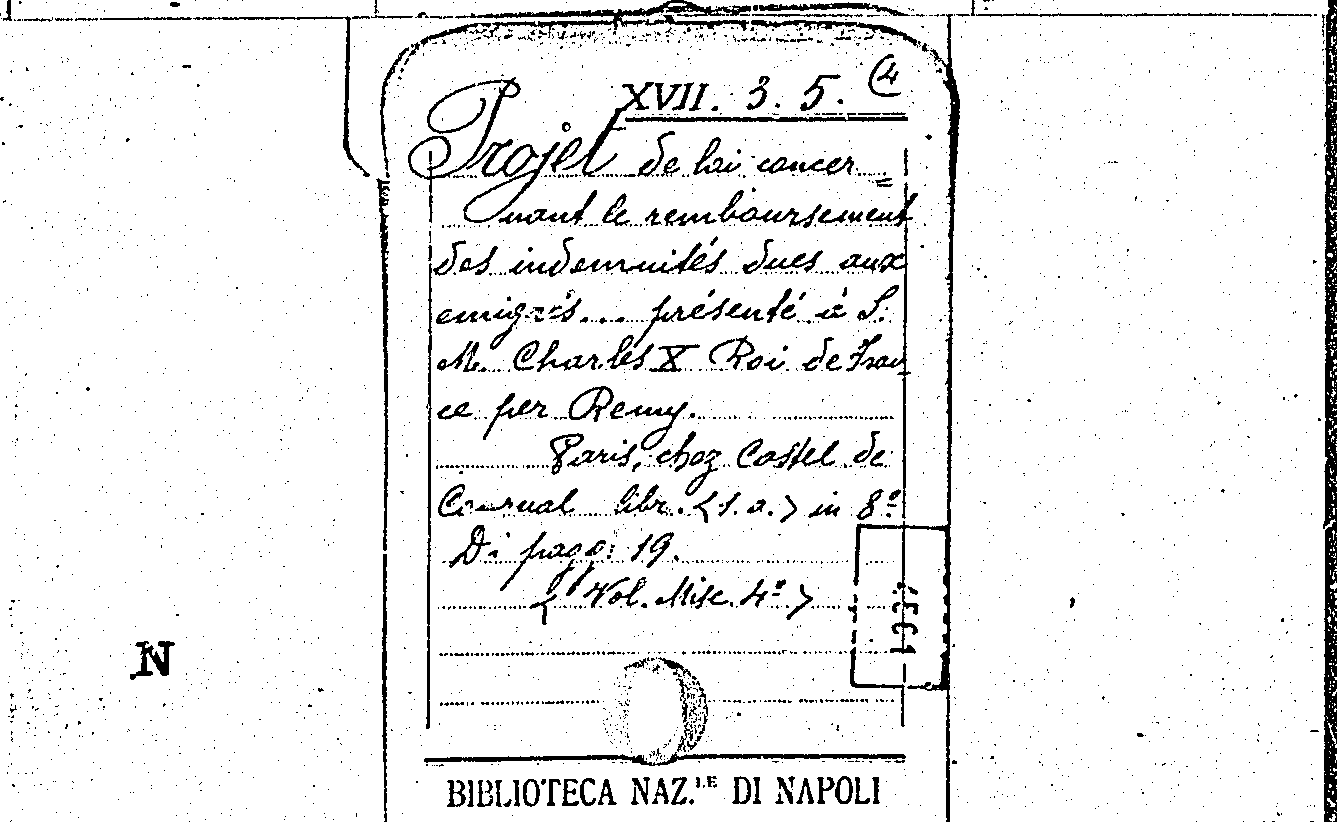 XVII. 3. 5. (4
Projet de loi concer=
nant le remboursement
des indemnités dues aux
emigrés... présenté à S.
M. Charles X Roi de Fran-
ce per Remy.
Paris, chez Castel de
Courval libr. <s. a.> in 8º
Di pagg. 19.
<Vol. Misc. 4º>
1937
N
BIBLIOTECA NAZ.LE DI NAPOLI